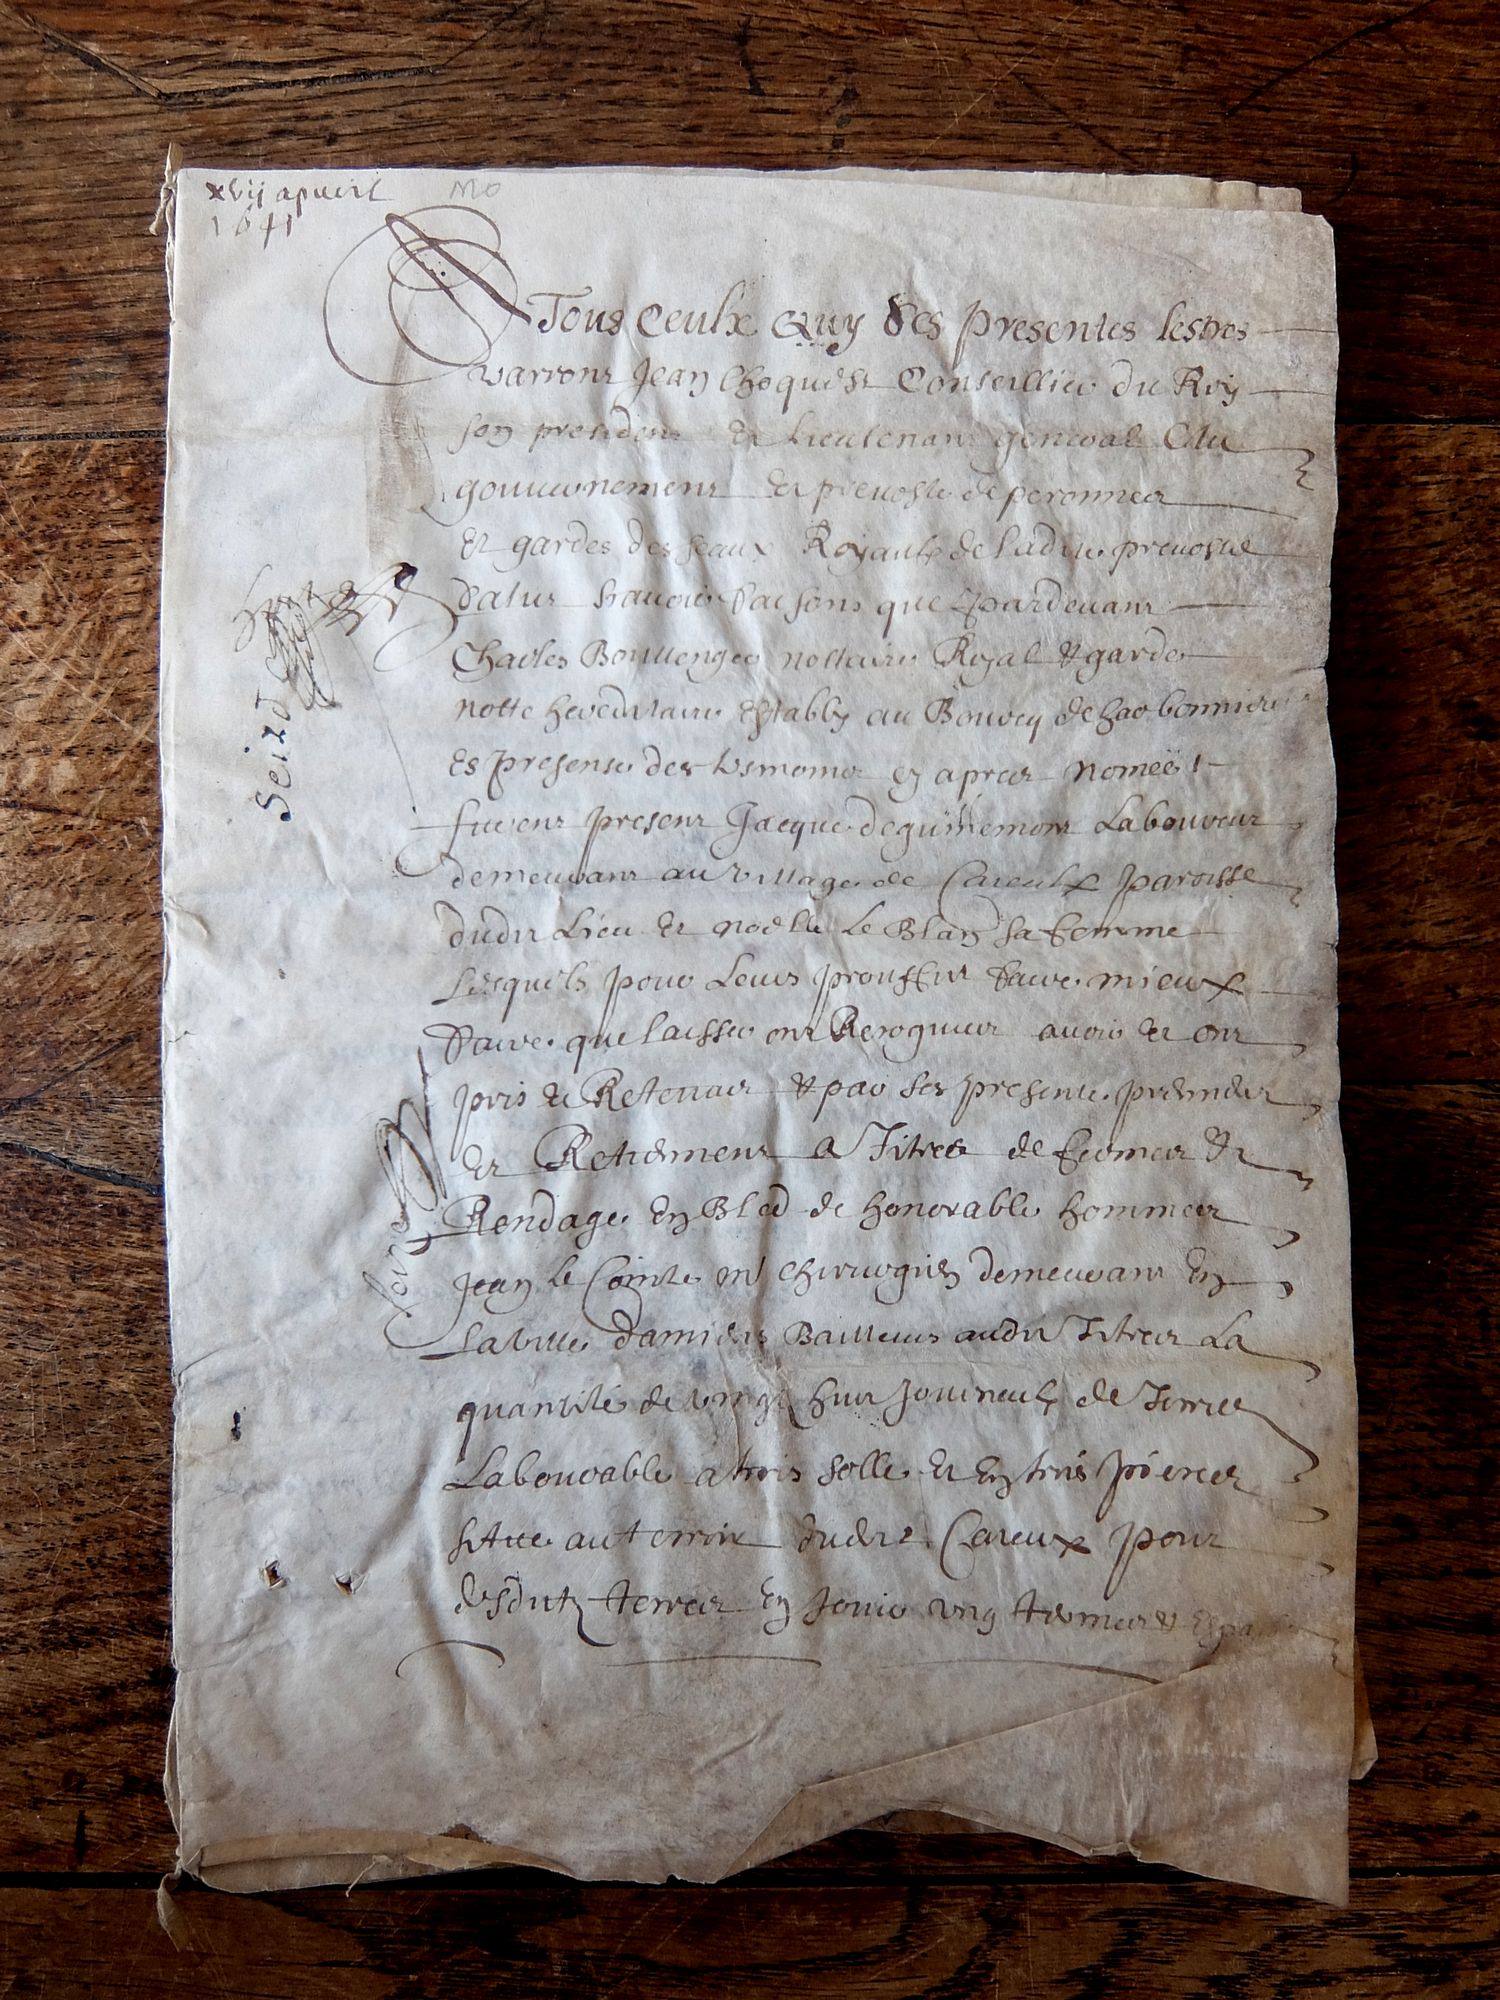 xvij apvril
1641
A Tous Ceulx Quy Ses presentes lestres
varront Jean Choquest Conseillier du Roy
son president Et Lieutenant general Au
gouvernement Et prevosté de peronnes
Et gardes des seaux Royaulx de ladite prevosté
salut scavoir faisons que pardevant
Charles Boullenger nottaire Royal & garde
notte hereditaire Establÿ au Bourcq de harbonniere
Es presense des tesmoins cy apres nomeës
furent present Jacque de guillemont Laboureur
demeurant au village de Caieulx paroisse
dudit Lieu Et noelle Le Blan sa femme
Lesquels pour Leurs prouffit faire mieux
faire que laisser ont Recognuer avoir Et ont
pris Et Retenuer & par Ses presente prendnet
Et Retiennent A Titres de fermes Et
Rendage En Bled de honorable hommes
Jean Le Conte mᵉ chirurgien demeurant En
La ville damiens Bailleurs audit Titres La
quantité de vingt huit Journeulx de Terres
Labourable a trois solle Et En trois pieces
scitue au terroir dudit Caieux pour
desdits terres En Jouir ung termes &